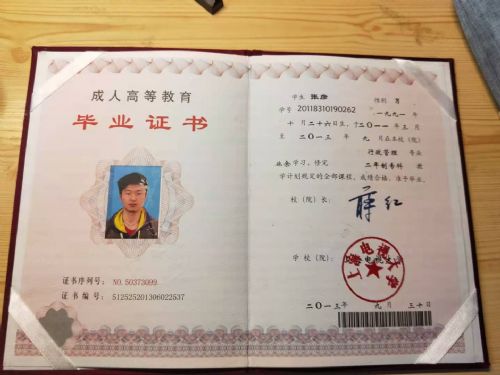 成人高等教育
毕业证书
证书序列号：NO.50373099
证书编号：512525201306022537
学生 张彦 性别 男
学号 20118310190262 一九九一
十月二十六日生，于二〇一一年三月
至二〇一三年九月在本校(院)
行政管理 专业
业余学习，修完 二年制专科 教
学计划规定的全部课程，成绩合格，准予毕业。
校（院）长： 蒋红
学校（院）：
上海电视大学
二〇一三年九月三十日